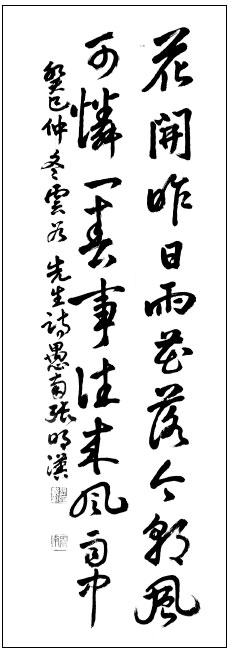 花開昨日雨花落今朝風
可憐一春事往來風雨中
癸巳仲冬雲谷先生詩愚南張明漢